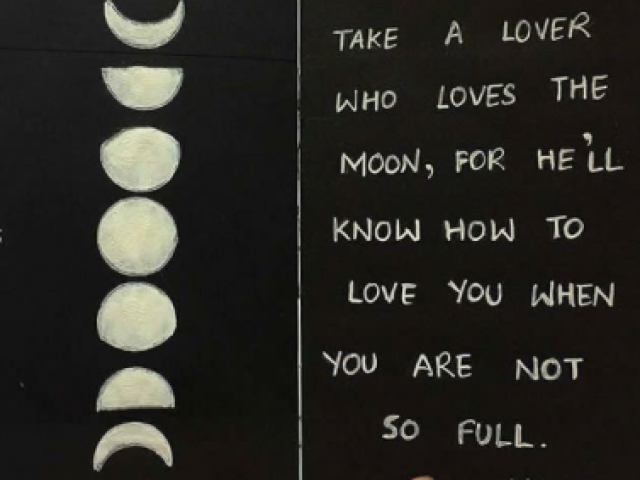 TAKE A LOVER
WHO LOVES THE
MOON, FOR HE'LL
KNOW HOW TO
LOVE YOU WHEN
YOU ARE NOT
SO FULL.